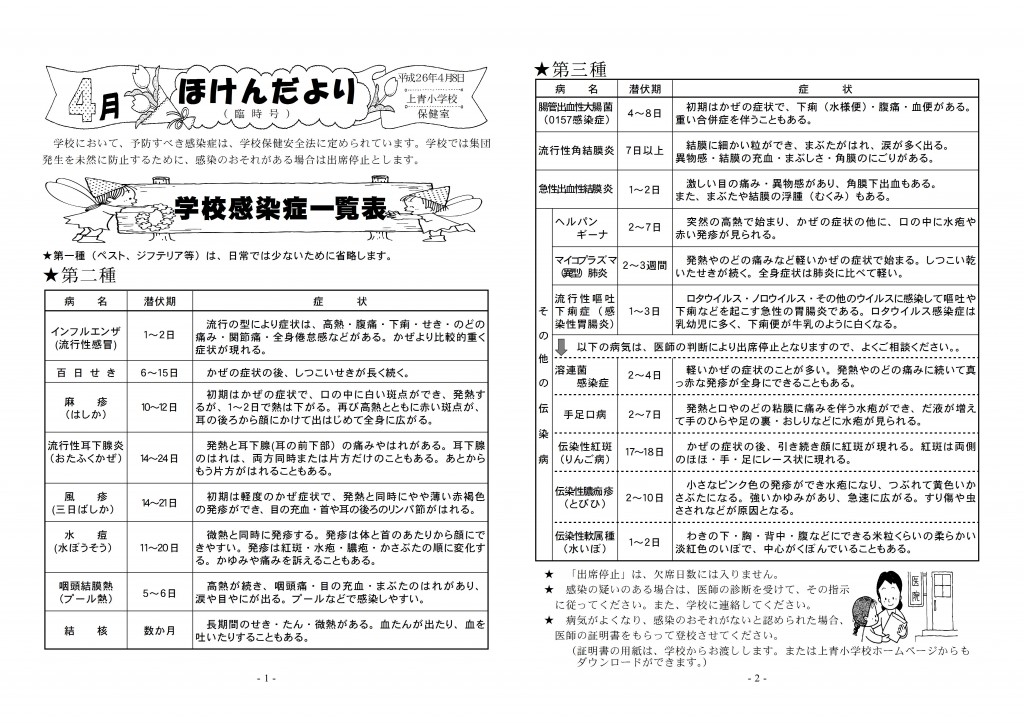 4月
ほけんだより
(臨時号)
平成26年4月8日
上青小学校
保健室
学校において、予防すべき感染症は、学校保健安全法に定められています。学校では集団
発生を未然に防止するために、感染のおそれがある場合は出席停止とします。
学校感染症一覧表
★第一種（ペスト、ジフテリア等）は、日常では少ないために省略します。
★第二種
病　名　潜伏期　症　状
インフルエンザ
(流行性感冒)
1～2日
流行の型により症状は、高熱・腹痛・下痢・せき・のどの
痛み・関節痛・全身倦怠感などがある。かぜより比較的重く
症状が現れる。
百日せき　6～15日　かぜの症状の後、しつこいせきが長く続く。
麻　疹
(はしか)
10～12日
初期はかぜの症状で、口の中に白い斑点ができ、発熱す
るが、1～2日で熱は下がる。再び高熱とともに赤い斑点が、
耳の後ろから顔にかけて出はじめて全身に広がる。
流行性耳下腺炎
(おたふくかぜ)
14～24日
発熱と耳下腺(耳の前下部）の痛みやはれがある。耳下腺
のはれは、両方同時または片方だけのこともある。あとから
もう片方がはれることもある。
風　疹
(三日ばしか)
14～21日
初期は軽度のかぜ症状で、発熱と同時にやや薄い赤褐色
の発疹ができ、目の充血・首や耳の後ろのリンパ節がはれる。
水　痘
(水ぼうそう)
11～20日
微熱と同時に発疹する。発疹は体と首のあたりから顔にで
きやすい。発疹は紅斑・水疱・膿疱・かさぶたの順に変化す
る。かゆみや痛みを訴えることもある。
咽頭結膜熱
(プール熱)
5～6日
高熱が続き、咽頭痛・目の充血・まぶたのはれがあり、
涙や目やにが出る。プールなどで感染しやすい。
結　核
数か月
長期間のせき・たん・微熱がある。血たんが出たり、血を
吐いたりすることもある。
- 1 -
★第三種
病　名　潜伏期　症　状
腸管出血性大腸菌
(O157感染症)
4～8日
初期はかぜの症状で、下痢（水様便）・腹痛・血便がある。
重い合併症を伴うこともある。
流行性角結膜炎
7日以上
結膜に細かい粒ができ、まぶたがはれ、涙が多く出る。
異物感・結膜の充血・まぶしさ・角膜のにごりがある。
急性出血性結膜炎
1～2日
激しい目の痛み・異物感があり、角膜下出血もある。
また、まぶたや結膜の浮腫（むくみ）もある。
その他の伝染病
ヘルパン
ギーナ
2～7日
突然の高熱で始まり、かぜの症状の他に、口の中に水疱や
赤い発疹が見られる。
マイコプラズマ
(異型) 肺炎
2～3週間
発熱やのどの痛みなど軽いかぜの症状で始まる。しつこい乾
いたせきが続く。全身症状は肺炎に比べて軽い。
流行性嘔吐
下痢症（感
染性胃腸炎）
1～3日
ロタウイルス・ノロウイルス・その他のウイルスに感染して嘔吐や
下痢などを起こす急性の胃腸炎である。ロタウイルス感染症は
乳幼児に多く、下痢便が牛乳のように白くなる。
以下の病気は、医師の判断により出席停止となりますので、よくご相談ください。。
溶連菌
感染症
2～4日
軽いかぜの症状のことが多い。発熱やのどの痛みに続いて真
っ赤な発疹が全身にできることもある。
手足口病
2～7日
発熱と口やのどの粘膜に痛みを伴う水疱ができ、だ液が増え
て手のひらや足の裏・おしりなどに水疱が見られる。
伝染性紅斑
(りんご病)
17～18日
かぜの症状の後、引き続き顔に紅斑が現れる。紅斑は両側
のほほ・手・足にレース状に現れる。
伝染性膿痂疹
(とびひ)
2～10日
小さなピンク色の発疹ができ水疱になり、つぶれて黄色いか
さぶたになる。強いかゆみがあり、急速に広がる。すり傷や虫
さされなどが原因となる。
伝染性軟属腫
(水いぼ)
1～2日
わきの下・胸・背中・腹などにできる米粒くらいの柔らかい
淡紅色のいぼで、中心がくぼんでいることもある。
★　「出席停止」は、欠席日数には入りません。
★　感染の疑いのある場合は、医師の診断を受けて、その指示
に従ってください。また、学校に連絡してください。
★　病気がよくなり、感染のおそれがないと認められた場合、
医師の証明書をもらって登校させてください。
（証明書の用紙は、学校からお渡しします。または上青小学校ホームページからも
ダウンロードができます。）
医院
- 2 -